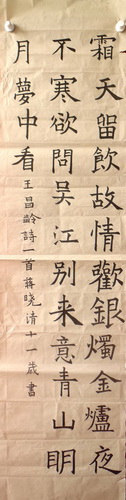 霜天留飲故情歡銀燭金爐夜
不寒欲問吴江别来意青山明
月夢中看
王昌齡詩一首蒋晓清十一歲書